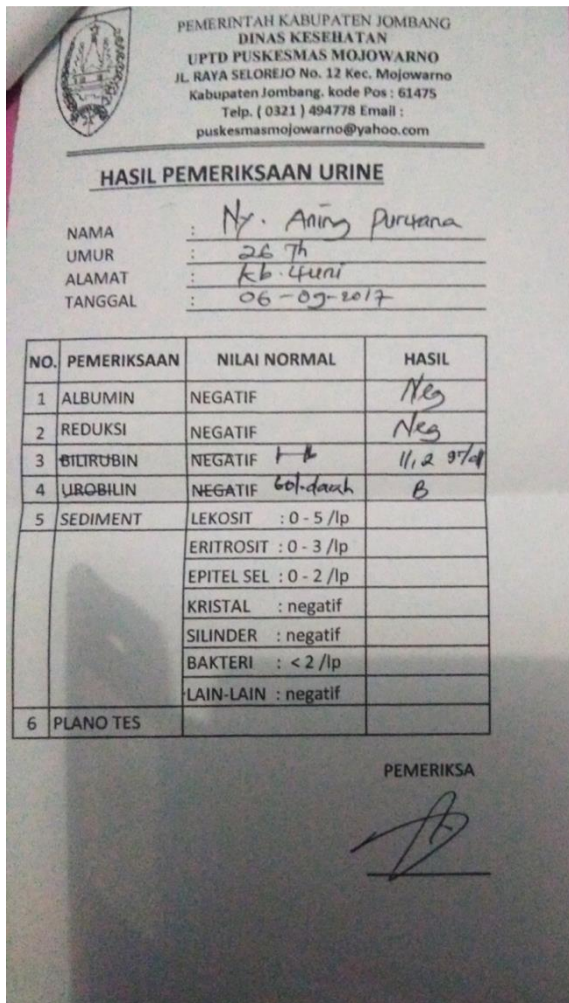 PEMERINTAH KABUPATEN JOMBANG
DINAS KESEHATAN
UPTD PUSKESMAS MOJOWARNO
JL. RAYA SELOREJO No. 12 Kec. Mojowarno
Kabupaten Jombang. kode Pos : 61475
Telp. ( 0321 ) 494778 Email :
puskesmasmojowarno@yahoo.com
HASIL PEMERIKSAAN URINE
NAMA : Ny. Aning Puryana
UMUR : 26 Th
ALAMAT : Kb. Yuni
TANGGAL : 06-09-2017
NO. PEMERIKSAAN NILAI NORMAL HASIL
1 ALBUMIN NEGATIF Neg
2 REDUKSI NEGATIF Neg
3 BILIRUBIN NEGATIF Hb 11,2 gr/dl
4 UROBILIN NEGATIF Gol.darah B
5 SEDIMENT LEKOSIT : 0 - 5 /lp
ERITROSIT : 0 - 3 /lp
EPITEL SEL : 0 - 2 /lp
KRISTAL : negatif
SILINDER : negatif
BAKTERI : < 2 /lp
LAIN-LAIN : negatif
6 PLANO TES
PEMERIKSA